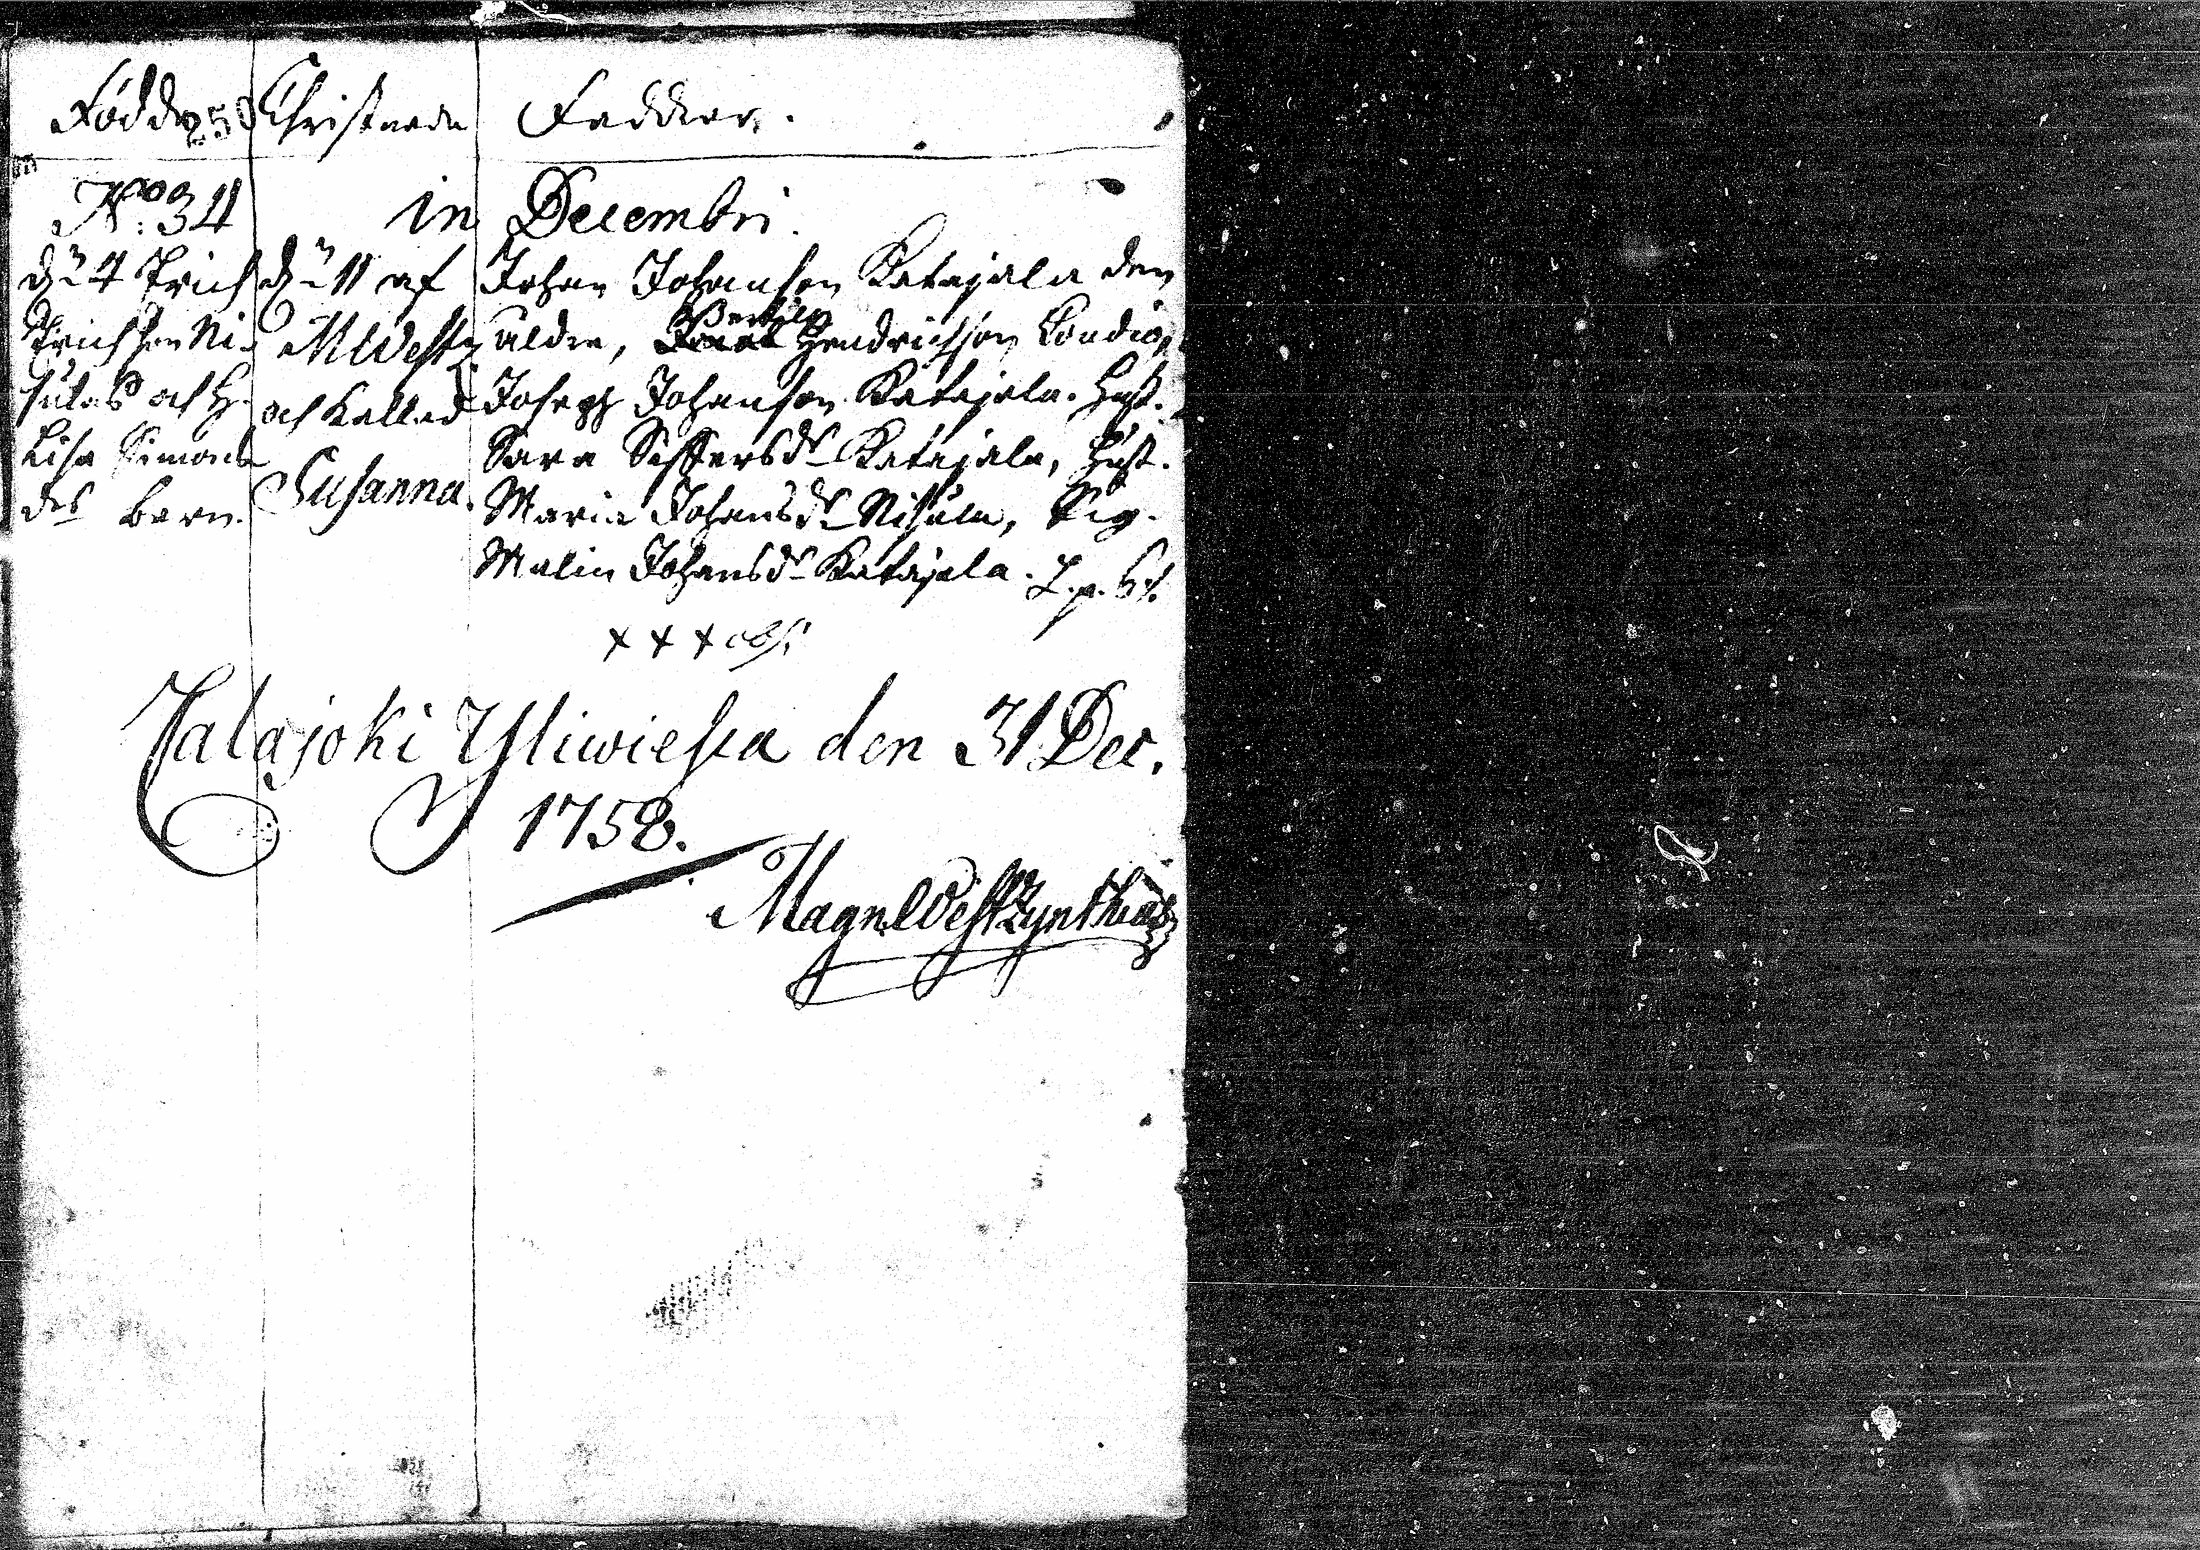 Födde 250 Christnade Faddrar.
No: 34 in Decembri.
d: 4 Erich
Erichson Ni-
sulas och H.
Lisa Simons
dr barn.
d: 11 af
MWest:
och kallad
Susanna.
Johan Johanson Katajala den
äldre, Hendrichson
Joseph Johanson Katajala. Hust.
Sara Siffersdr Katajala, Hust.
Maria Johansdr Nisula, Pig.
Malin Johansdr Katajala.
+ + + obs:
Calajoki Yliwieska den 31 Dec.
1758.
Magn. West Zynthius